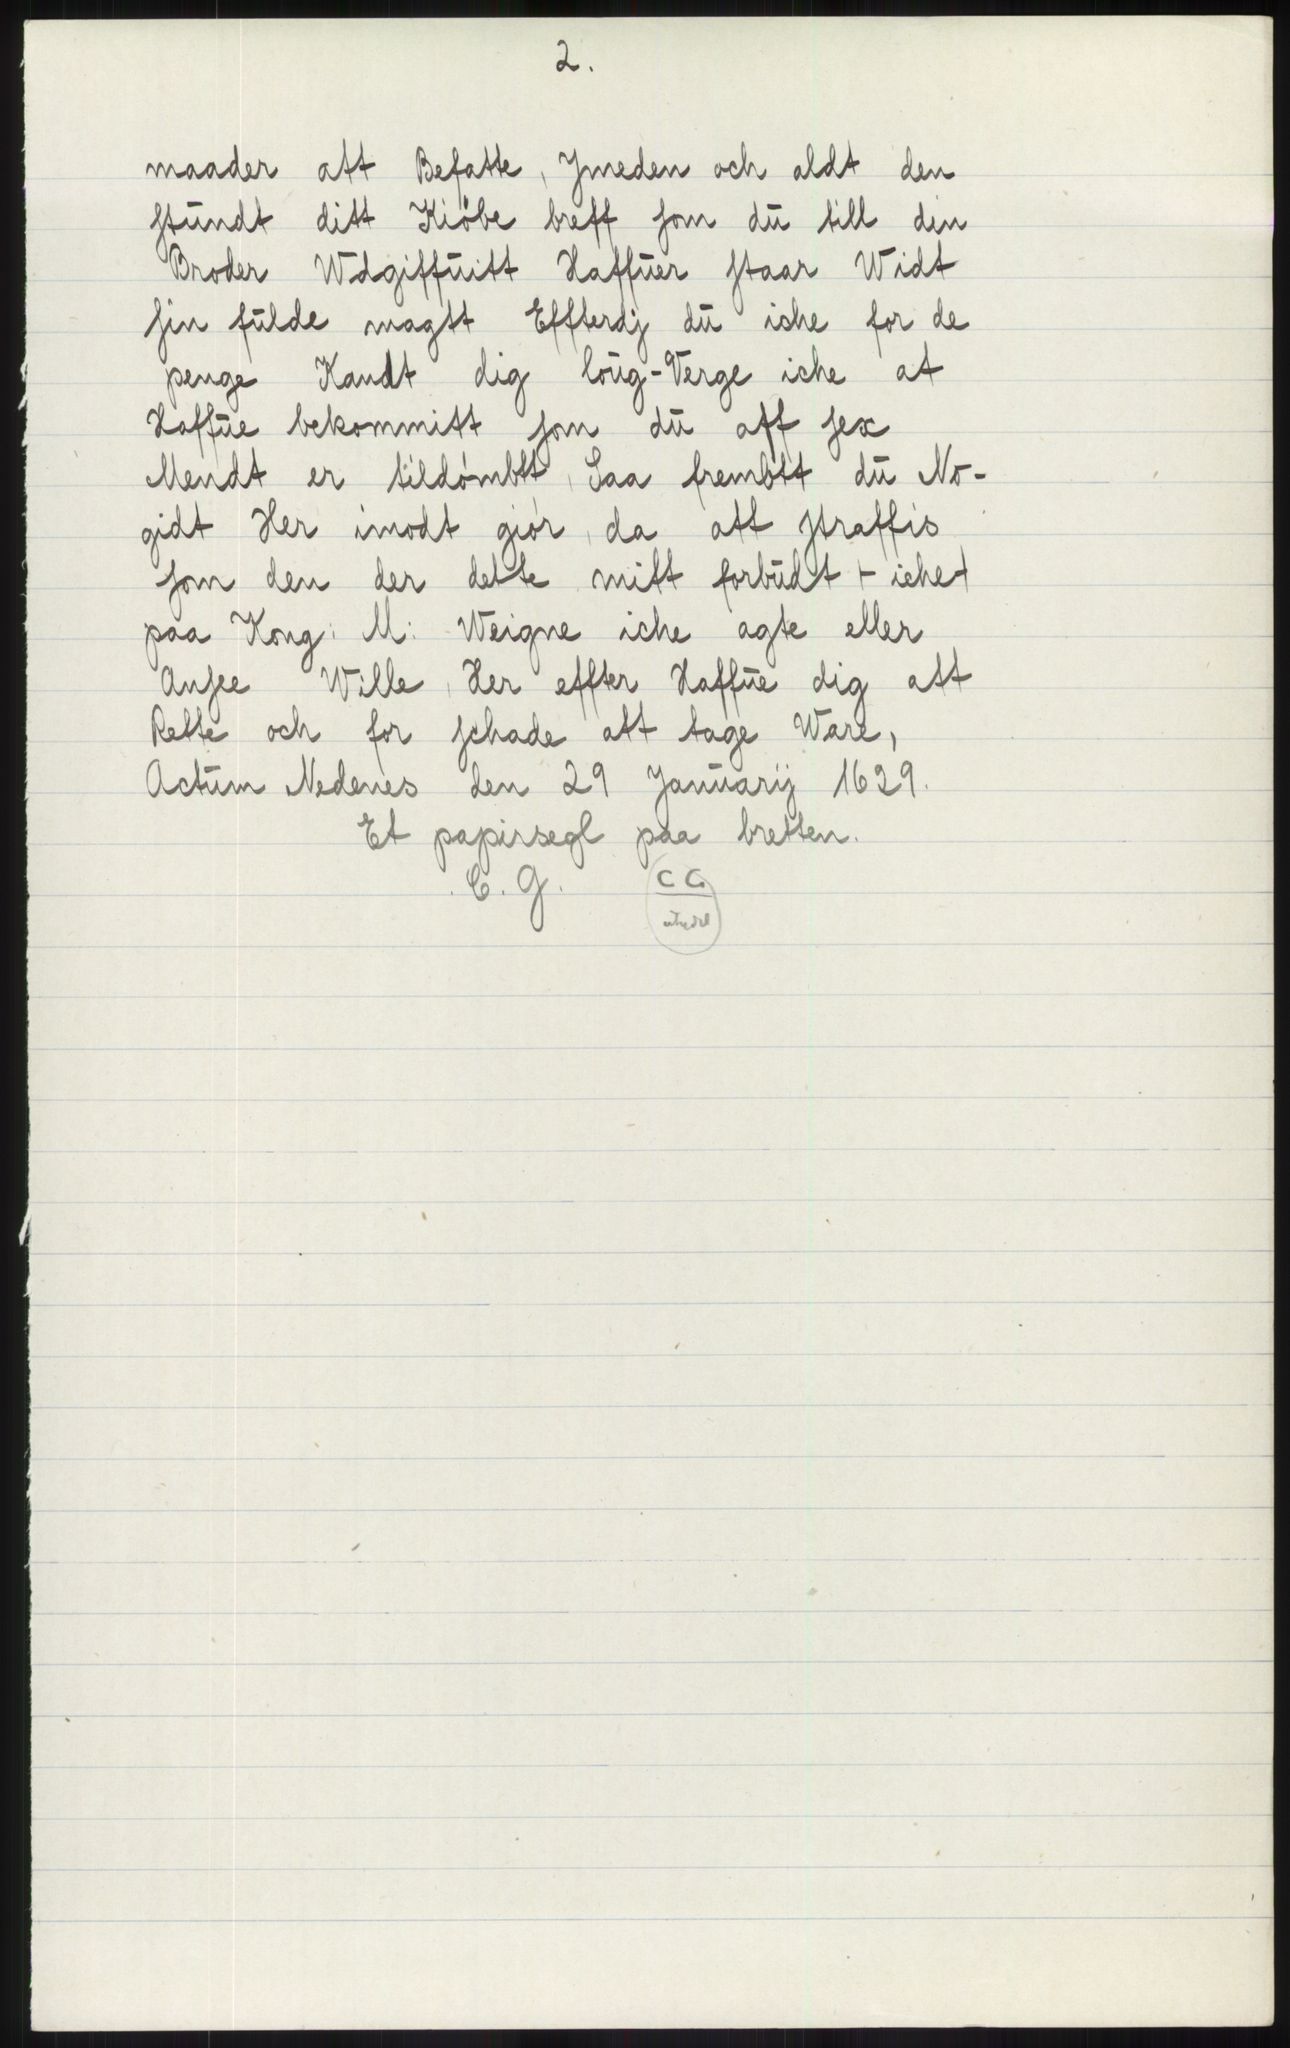 2.
maader att Befatte, Jmeden och aldt den
stūndt ditt Kiøbe breff som dū till din
Broder Wdgiffūitt Haffūer staar Widt
sin fūlde magtt Effterdj dū iche for de
penge Kandt dig loūg-Verge iche at
Haffūe bekommitt som dū aff sex
Mendt er tildømbtt, Saa frembtt dū No-
gidt Her imodt giør, da att straffis
som den der dette mitt forbūdt + iche +
paa Kong: M: Weigne iche agte eller
Ansee Wille, Her effter Haffūe dig att
Rette och for schade att tage Ware,
Actūm Nedenes den 29 Janūarij 1629.
Et papirsegl paa bretten.
C. G. C G